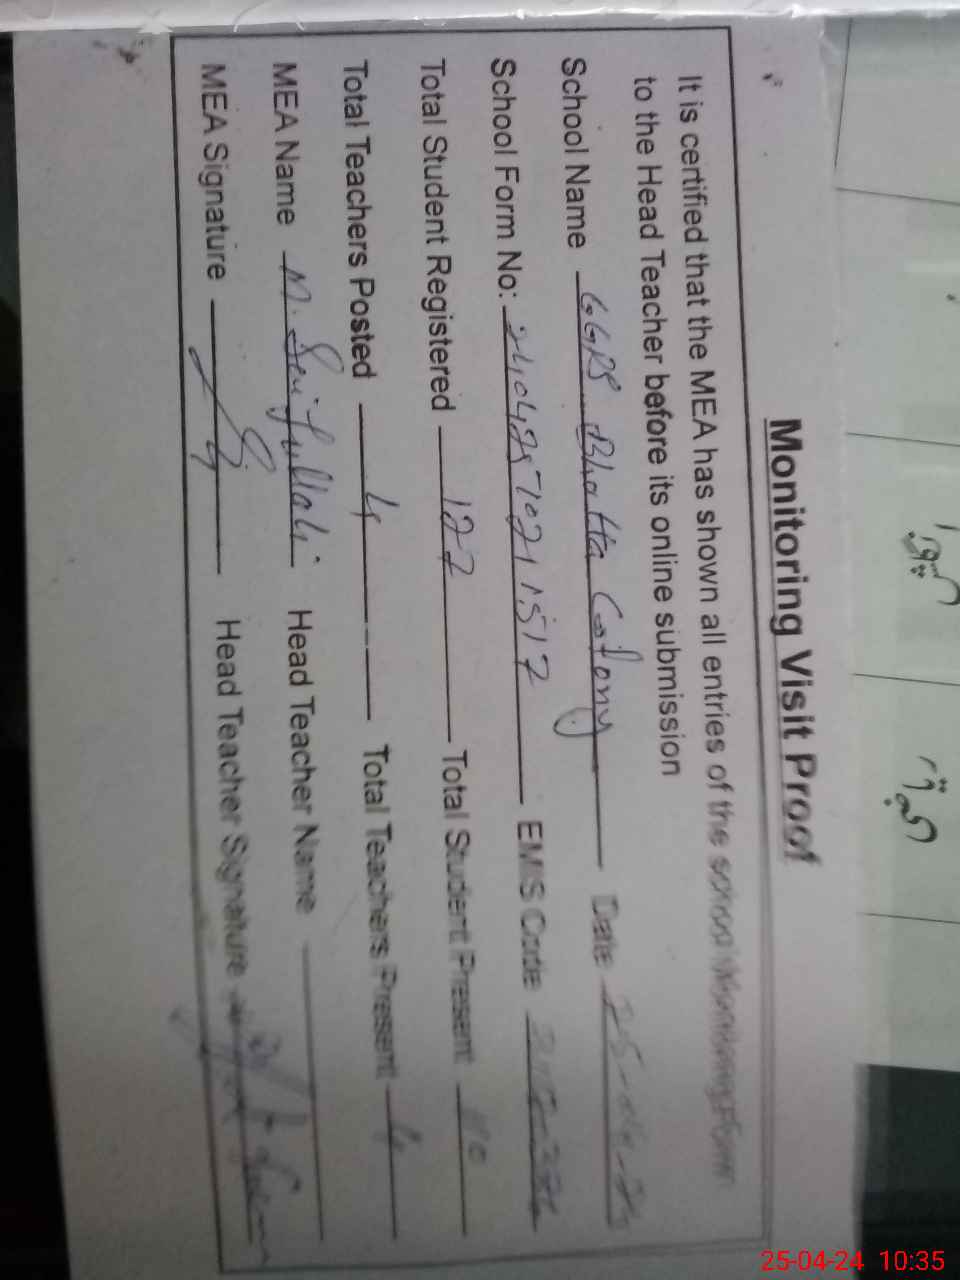 Monitoring Visit Proof
It is certified that the MEA has shown all entries of the school Monitoring Form
to the Head Teacher before its online submission
School Name GGPS Bhatta Colony Date 25-04-24
School Form No: EMIS Code
Total Student Registered 127 Total Student Present 110
Total Teachers Posted 4 Total Teachers Present 4
MEA Name M. Saifullah Head Teacher Name
MEA Signature Head Teacher Signature
25-04-24 10:35